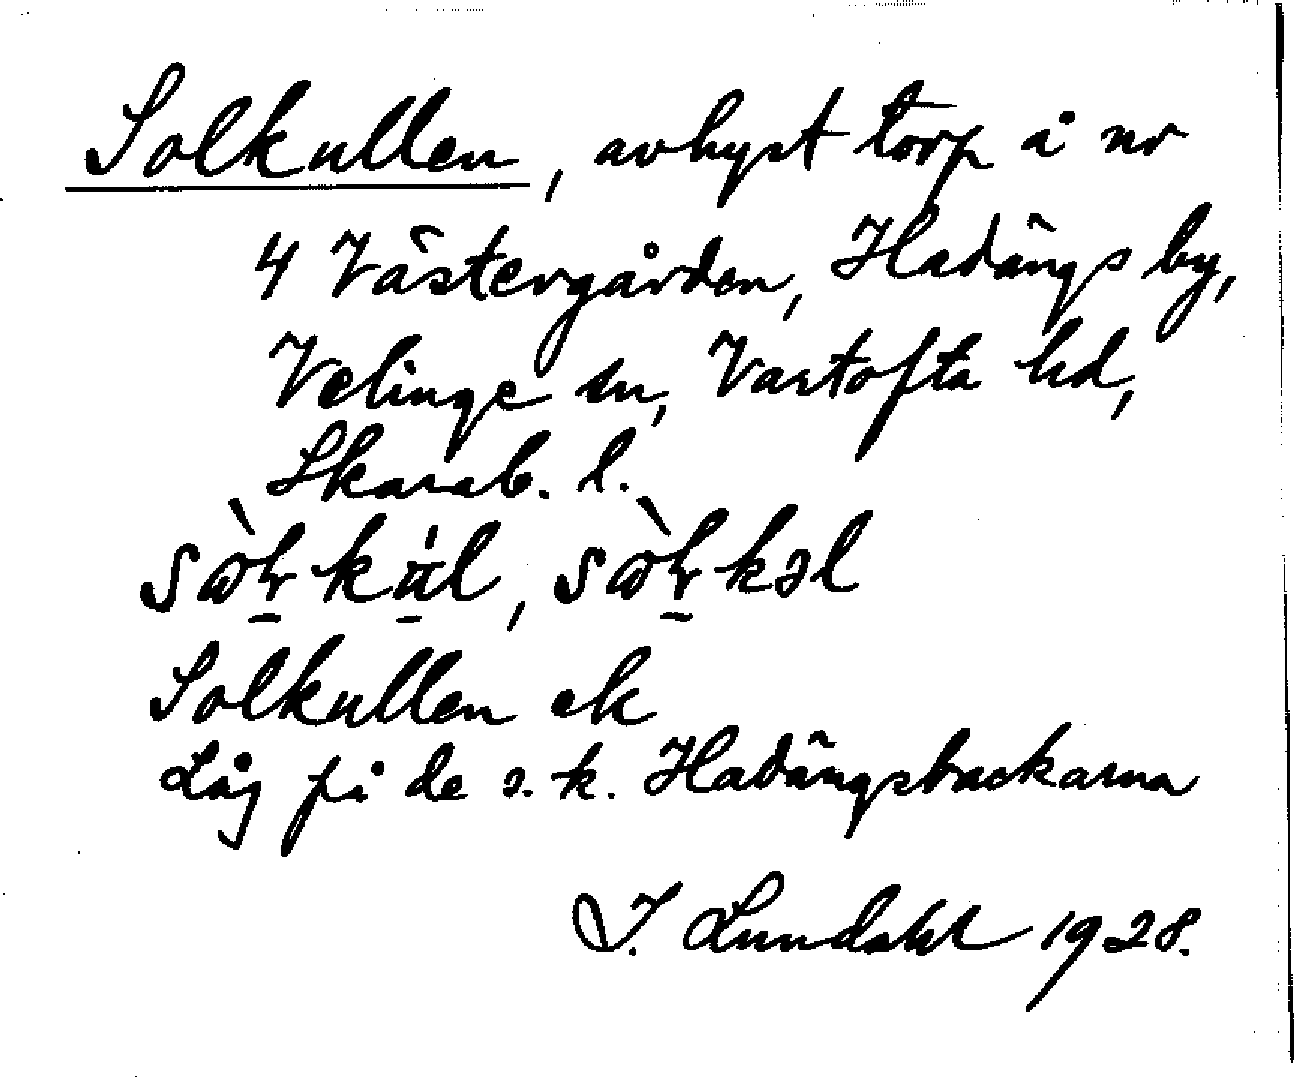 Solkullen, avhyst torp å nr
4 Västergården, Hadängs by,
Velinge sn, Vartofta hd,
Skarab. l.
Solkullen ek
Låg på de s.k. Hadängsbackarna
I. Lundahl 1928.